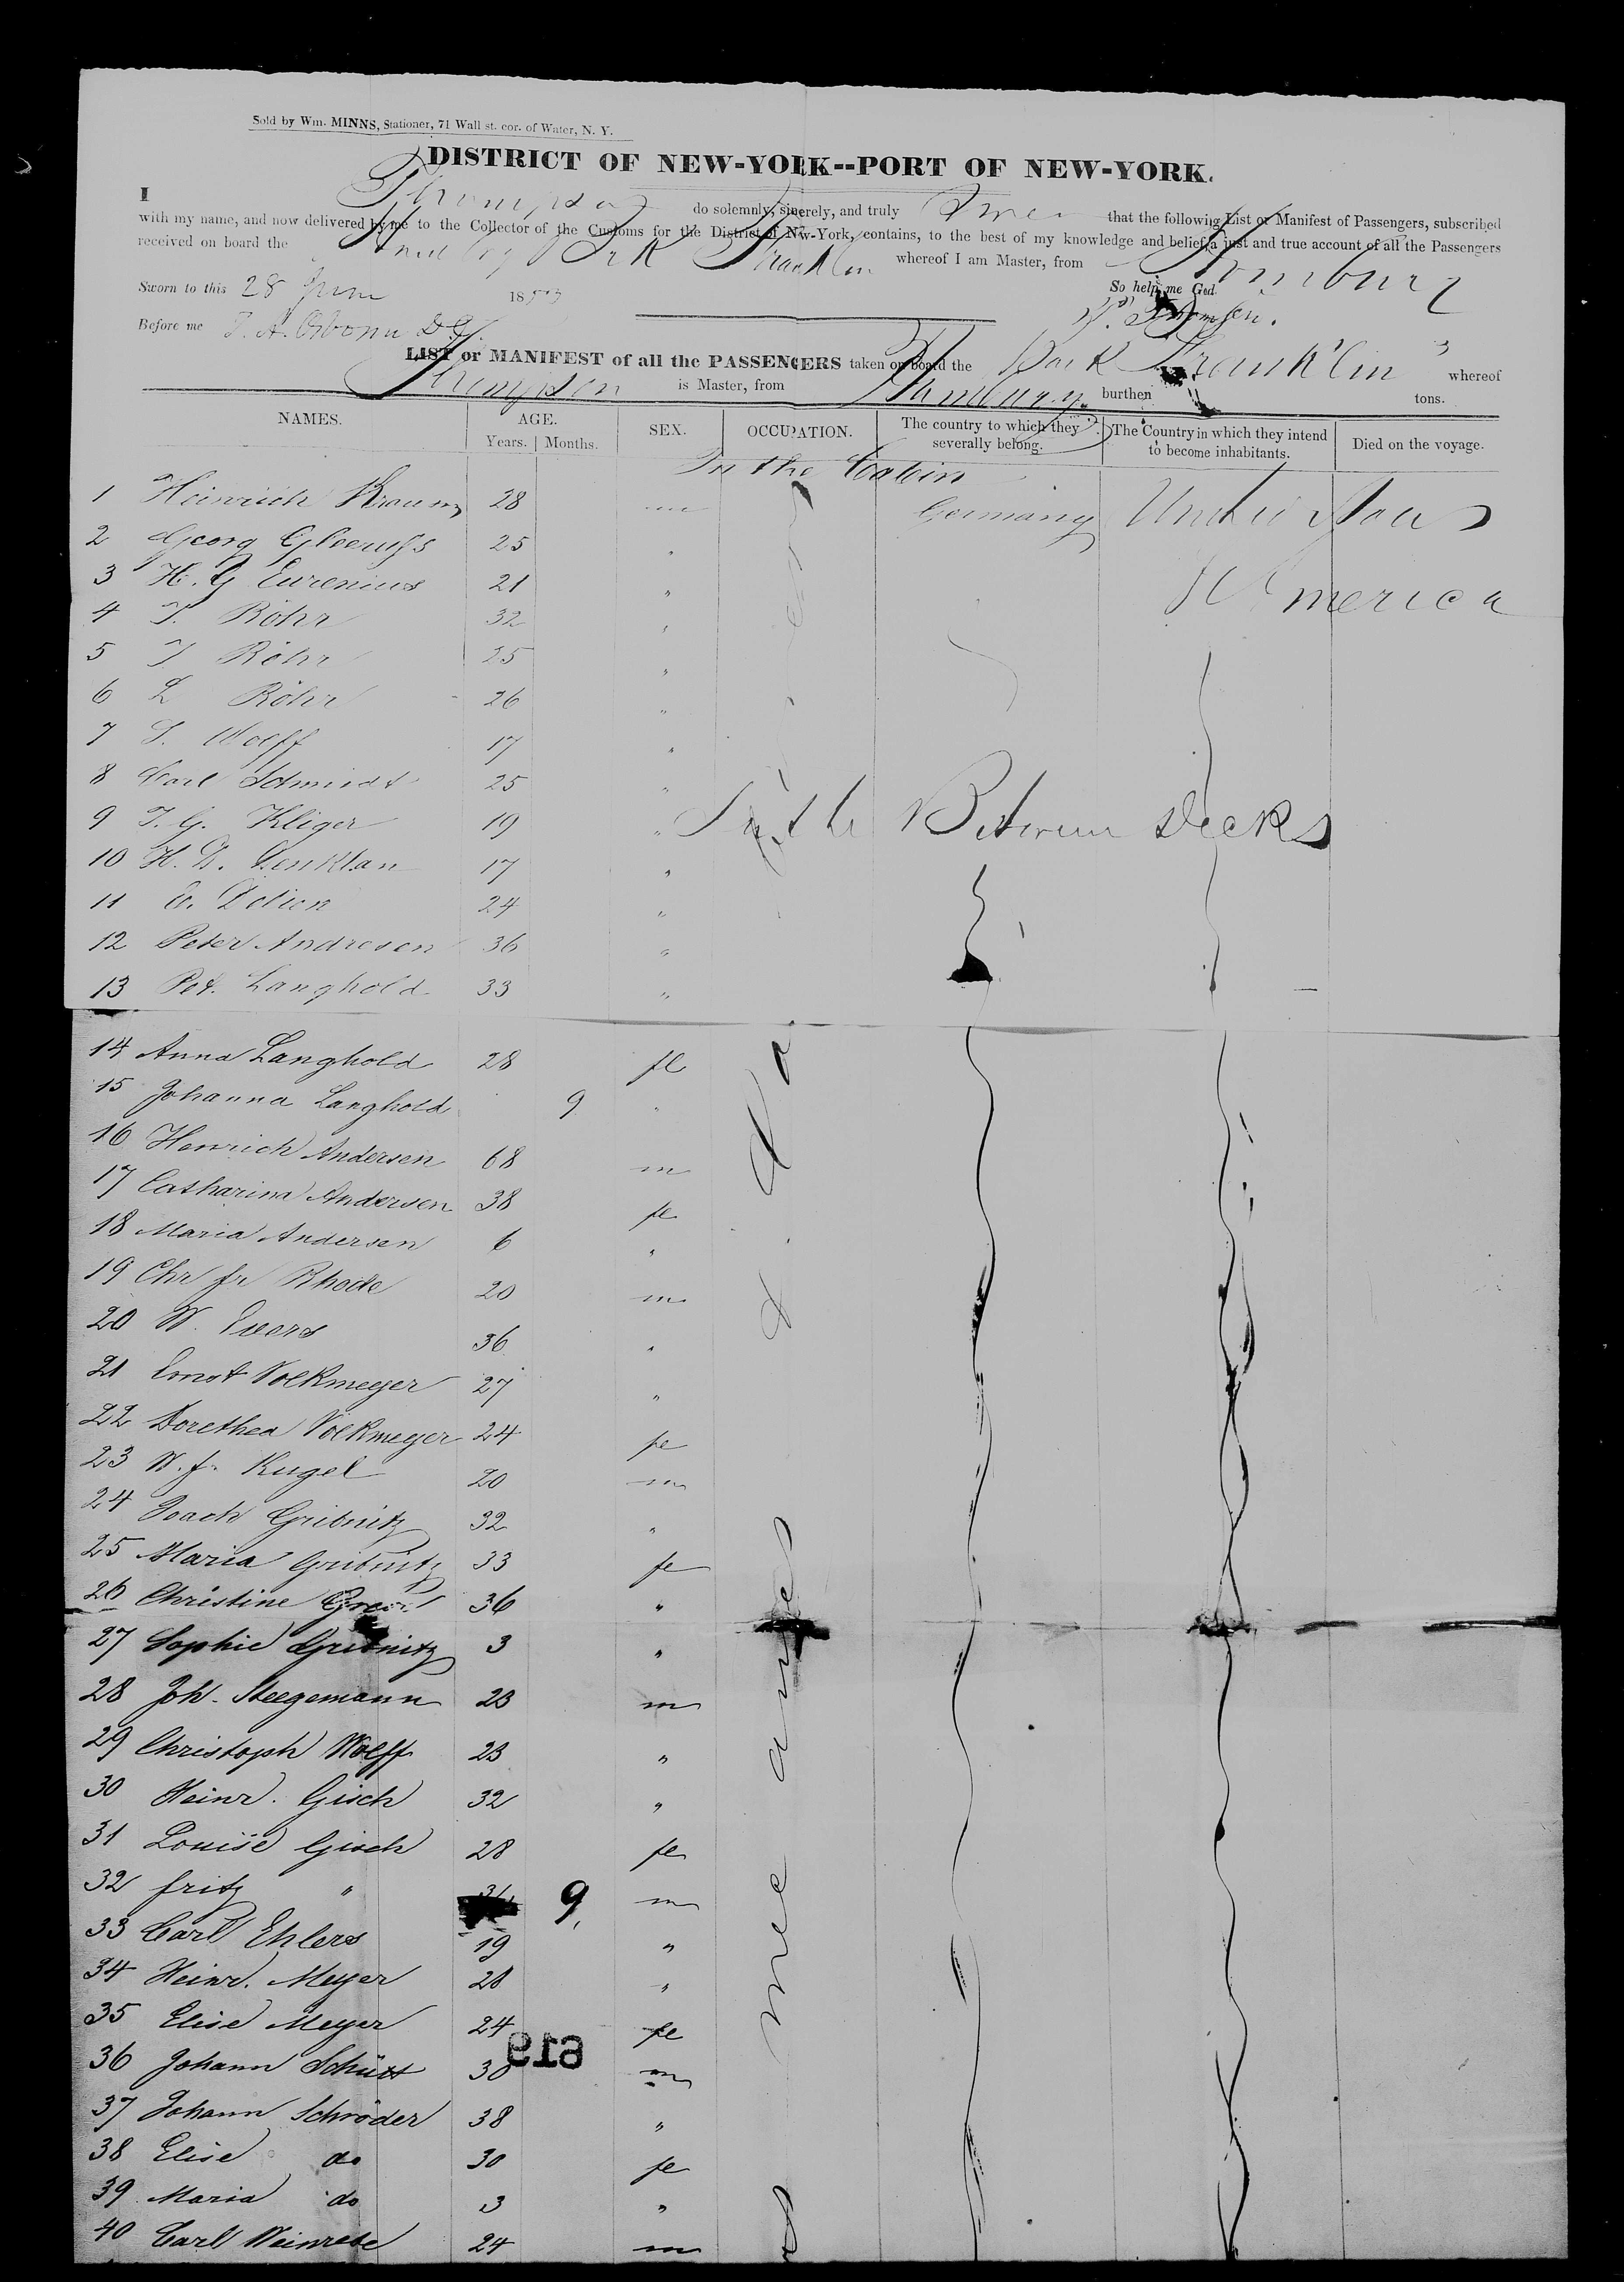 Sold by Wm. MINNS, Stationer, 71 Wall st. cor. of Water, N. Y.
DISTRICT OF NEW-YORK--PORT OF NEW-YORK.
I do solemnly, sincerely, and truly that the following List or Manifest of Passengers, subscribed
with my name, and now delivered by me to the Collector of the Customs for the District of New-York, contains, to the best of my knowledge and belief, a just and true account of all the Passengers
received on board the Franklin whereof I am Master, from
Sworn to this 28 June 1853 So help me God.
Before me
LIST or MANIFEST of all the PASSENGERS taken on board the Bark Franklin whereof
is Master, from Hamburg burthen tons.
NAMES. AGE. SEX. OCCUPATION. The country to which they severally belong. The Country in which they intend to become inhabitants. Died on the voyage.
Years. Months.
In the Cabin
1 Heinrich 28 m Germany
2 Georg 25 "
3 H. G Eurenius 21 "
America
4 Röhr 32 "
5 Röhr 25 "
6 L Röhr 26 "
7 Wolff 17 "
8 Carl Schmidt 25 "
In the Between Decks
9 Kliger 19 "
10 17 "
11 24 "
12 Peter Andresen 36 "
13 Pet. Langhold 33 "
14 Anna Langhold 28 fe
15 Johanna Langhold 9 "
16 Henrich Andersen 68 m
17 Catharina Andersen 38 fe
18 Maria Andersen 6 "
19 Chr fr Rhode 20 m
20 W. Evers 36 "
21 Ernst Volkmeyer 27 "
22 Dorethea Volkmeyer 24 fe
23 W. fr. Kugel 20 m
24 Joach Gribnitz 32 "
25 Maria Gribnitz 33 fe
26 Christine 36 "
27 Sophie Gribnitz 3 "
28 Joh. Steegemann 23 m
29 Christoph Wolff 23 "
30 Heinr. Gisch 32 "
31 Louise Gisch 28 fe
32 fritz " 9 m
33 Carl Ehlers 19 "
34 Heinr. Meyer 28 "
35 Elise Meyer 24 fe
619
36 Johann Schütt 30 m
37 Johann Schröder 38 "
38 Elise do 30 fe
39 Maria do 3 "
40 Carl 24 m